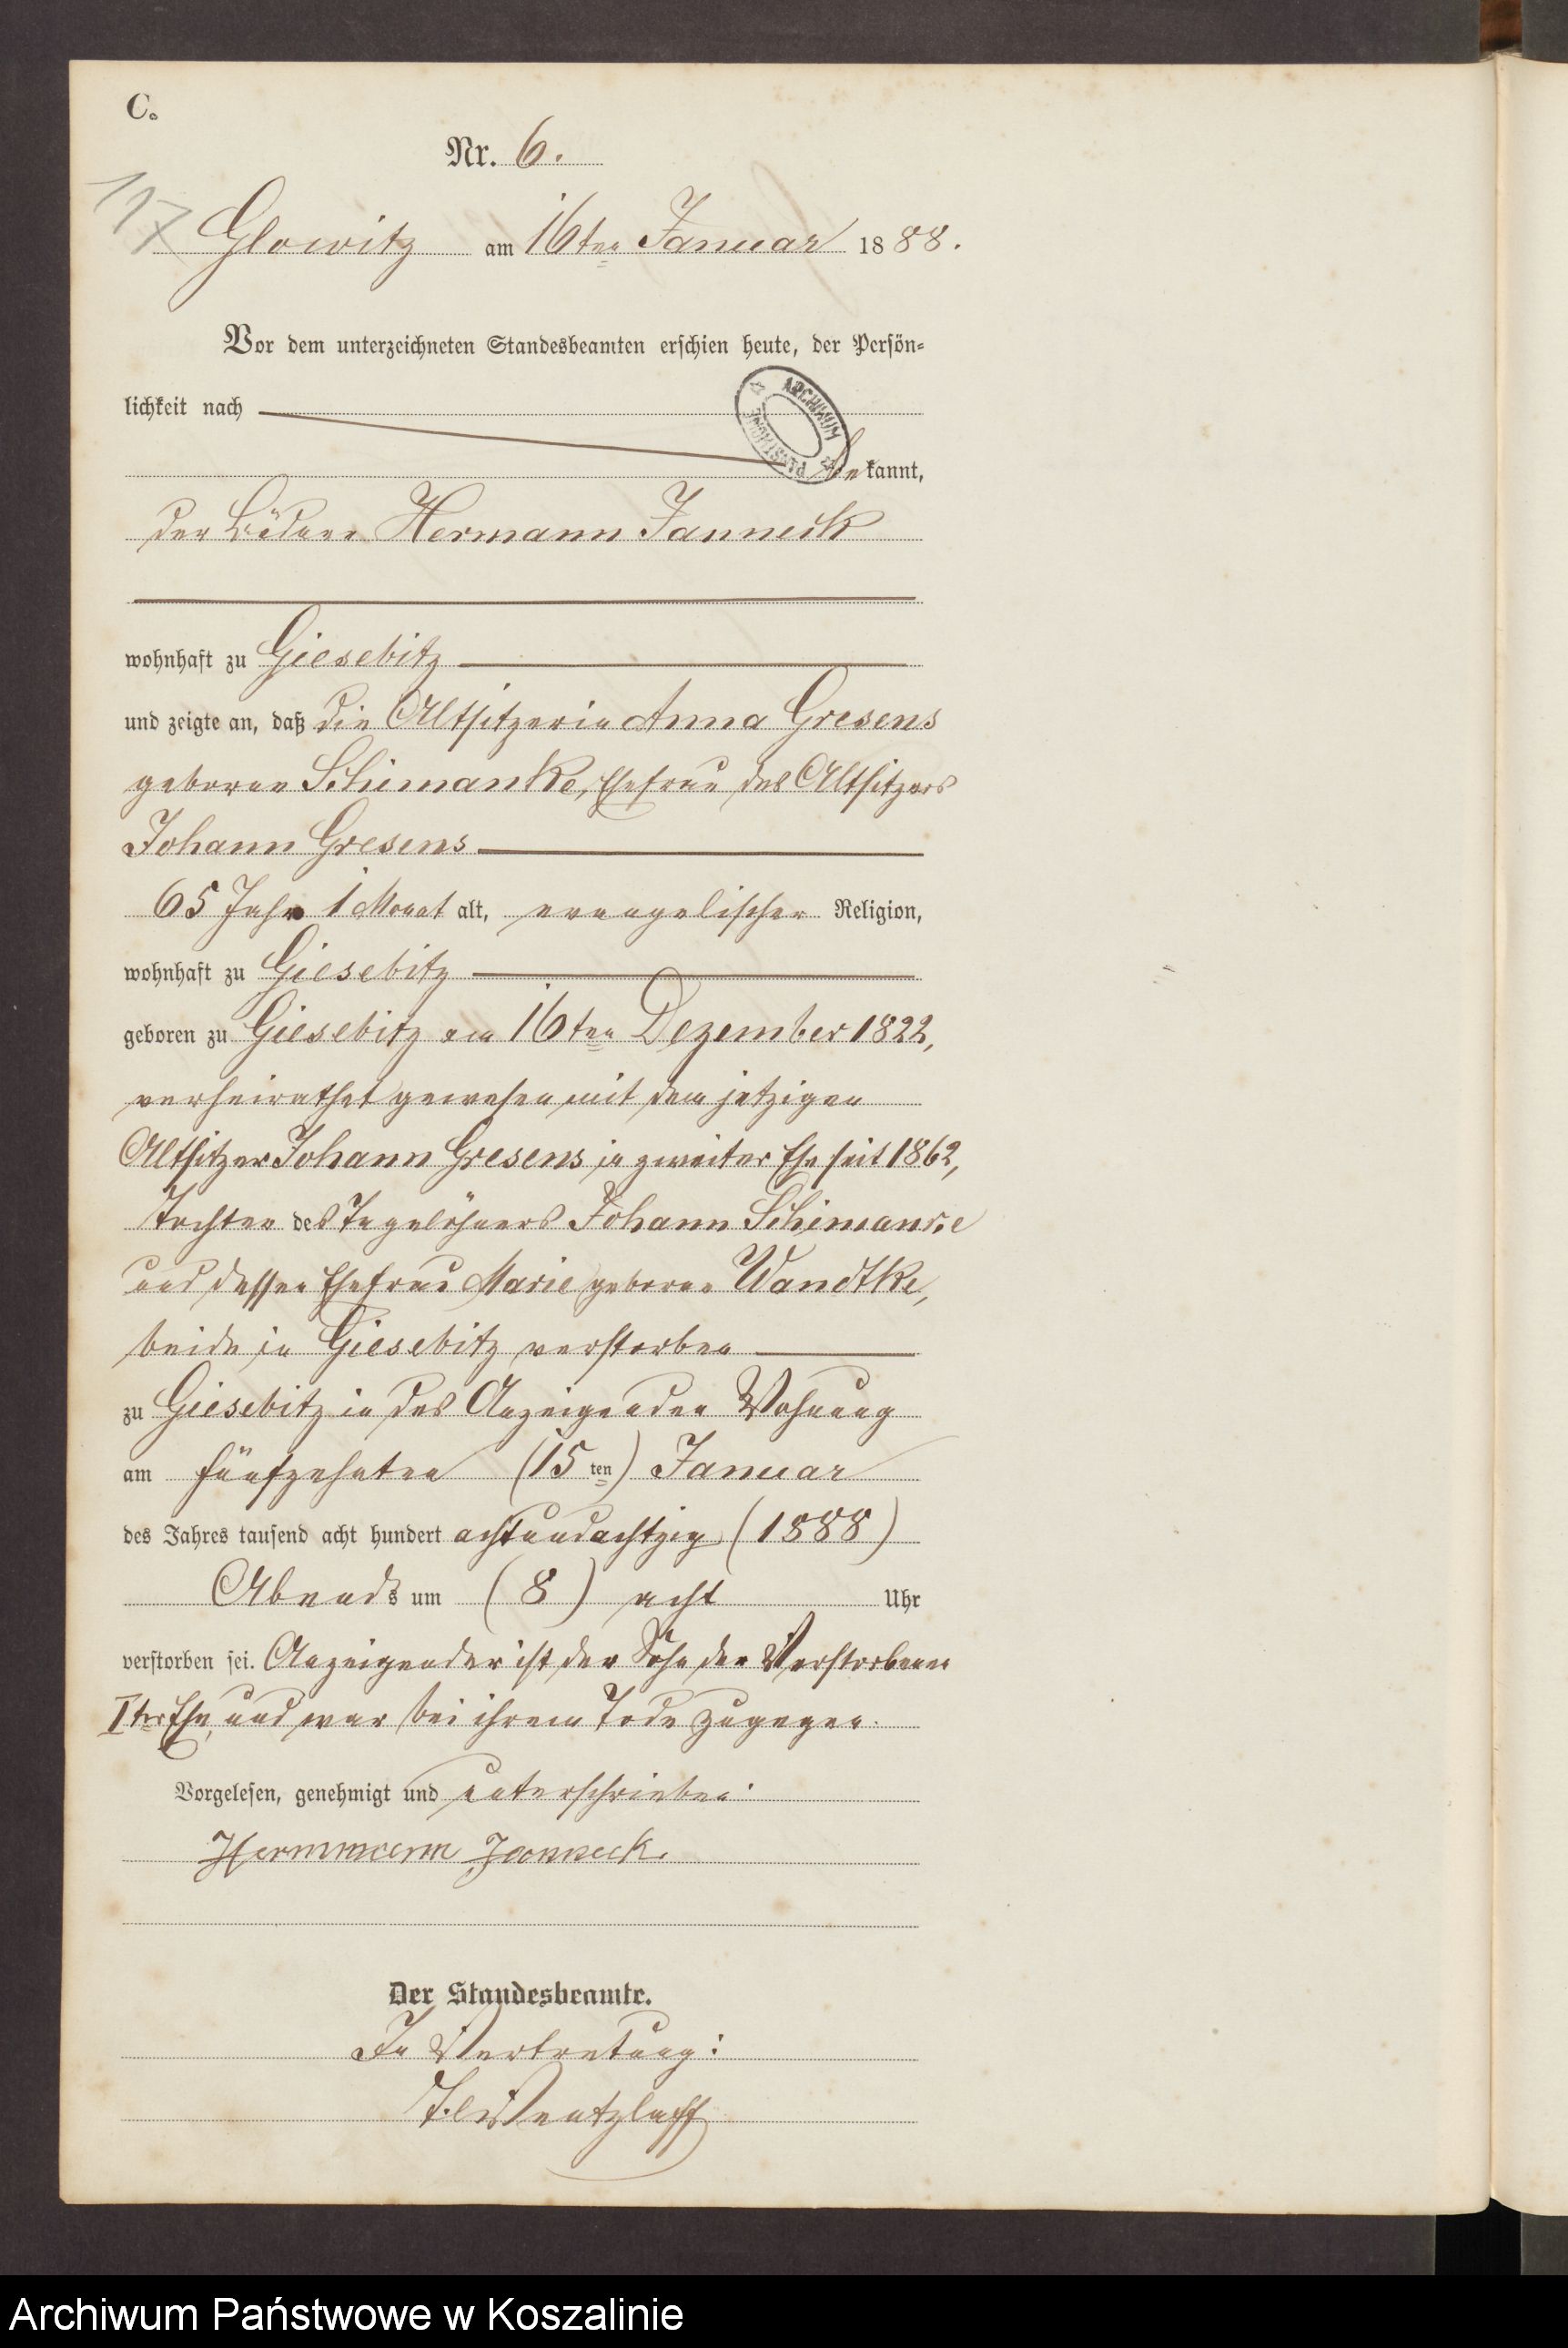 C.
Nr. 6.
117
Glowitz am 16ten Januar 1888.
Vor dem unterzeichneten Standesbeamten erschien heute, der Persön-
lichkeit nach
ARCHIWUM PAŃSTWOWE
bekannt,
der Büdner Hermann Janneck
wohnhaft zu Giesebitz
und zeigte an, daß die Altsitzerin Anna Gresens
geborne Schimanke, Ehefrau des Altsitzers
Johann Gresens
65 Jahr 1 Monat alt, evangelischer Religion,
wohnhaft zu Giesebitz
geboren zu Giesebitz am 16ten Dezember 1822,
verheirathet gewesen mit dem jetzigen
Altsitzer Johann Gresens in zweiter Ehe seit 1862,
Tochter des Tagelöhners Johann Schimanke
und dessen Ehefrau Marie geborne Wandtke,
beide in Giesebitz verstorben
zu Giesebitz in des Anzeigenden Wohnung
am fünfzehnten (15ten) Januar
des Jahres tausend acht hundert achtundachtzig (1888)
Abends um (8) acht Uhr
verstorben sei. Anzeigender ist der Sohn der Verstorbenen
Iter Ehe, und war bei ihrem Tode zugegen.
Vorgelesen, genehmigt und unterschrieben:
Hermmann Janneck.
Der Standesbeamte.
In Vertretung:
Wentzlaff
Archiwum Państwowe w Koszalinie